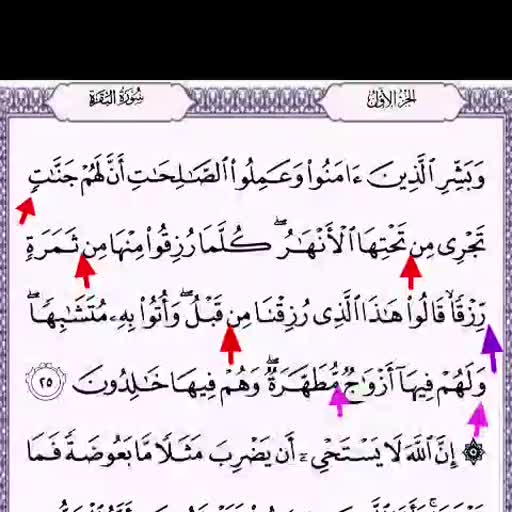 سُورَةُ البَقَرَةِ الجُزءُ الأوَّلُ
وَبَشِّرِ ٱلَّذِينَ ءَامَنُوا۟ وَعَمِلُوا۟ ٱلصَّـٰلِحَـٰتِ أَنَّ لَهُمْ جَنَّـٰتٍ
تَجْرِى مِن تَحْتِهَا ٱلْأَنْهَـٰرُ ۖ كُلَّمَا رُزِقُوا۟ مِنْهَا مِن ثَمَرَةٍ
رِّزْقًا ۙ قَالُوا۟ هَـٰذَا ٱلَّذِى رُزِقْنَا مِن قَبْلُ ۖ وَأُتُوا۟ بِهِۦ مُتَشَـٰبِهًا ۖ
وَلَهُمْ فِيهَآ أَزْوَٰجٌ مُّطَهَّرَةٌ ۖ وَهُمْ فِيهَا خَـٰلِدُونَ ٢٥
۞ إِنَّ ٱللَّهَ لَا يَسْتَحْىِۦٓ أَن يَضْرِبَ مَثَلًا مَّا بَعُوضَةً فَمَا